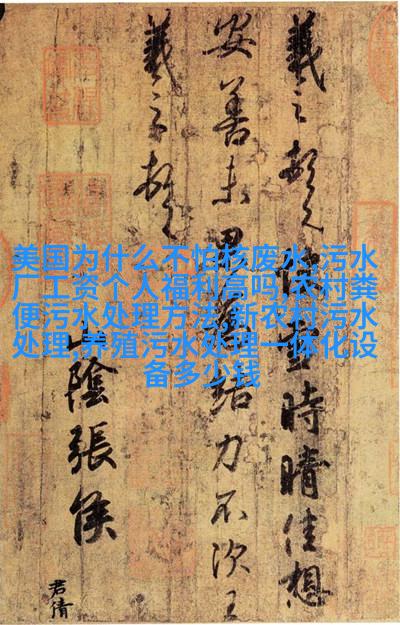 美国为什么不怕核废水,污水
厂工资个人福利高吗,农村粪
便污水处理方法,新农村污水
处理,养殖污水处理一体化设
备多少钱
羲之頓首快雪時晴佳想
安善未果為結力不次王
羲之頓首
山陰張侯
君倩